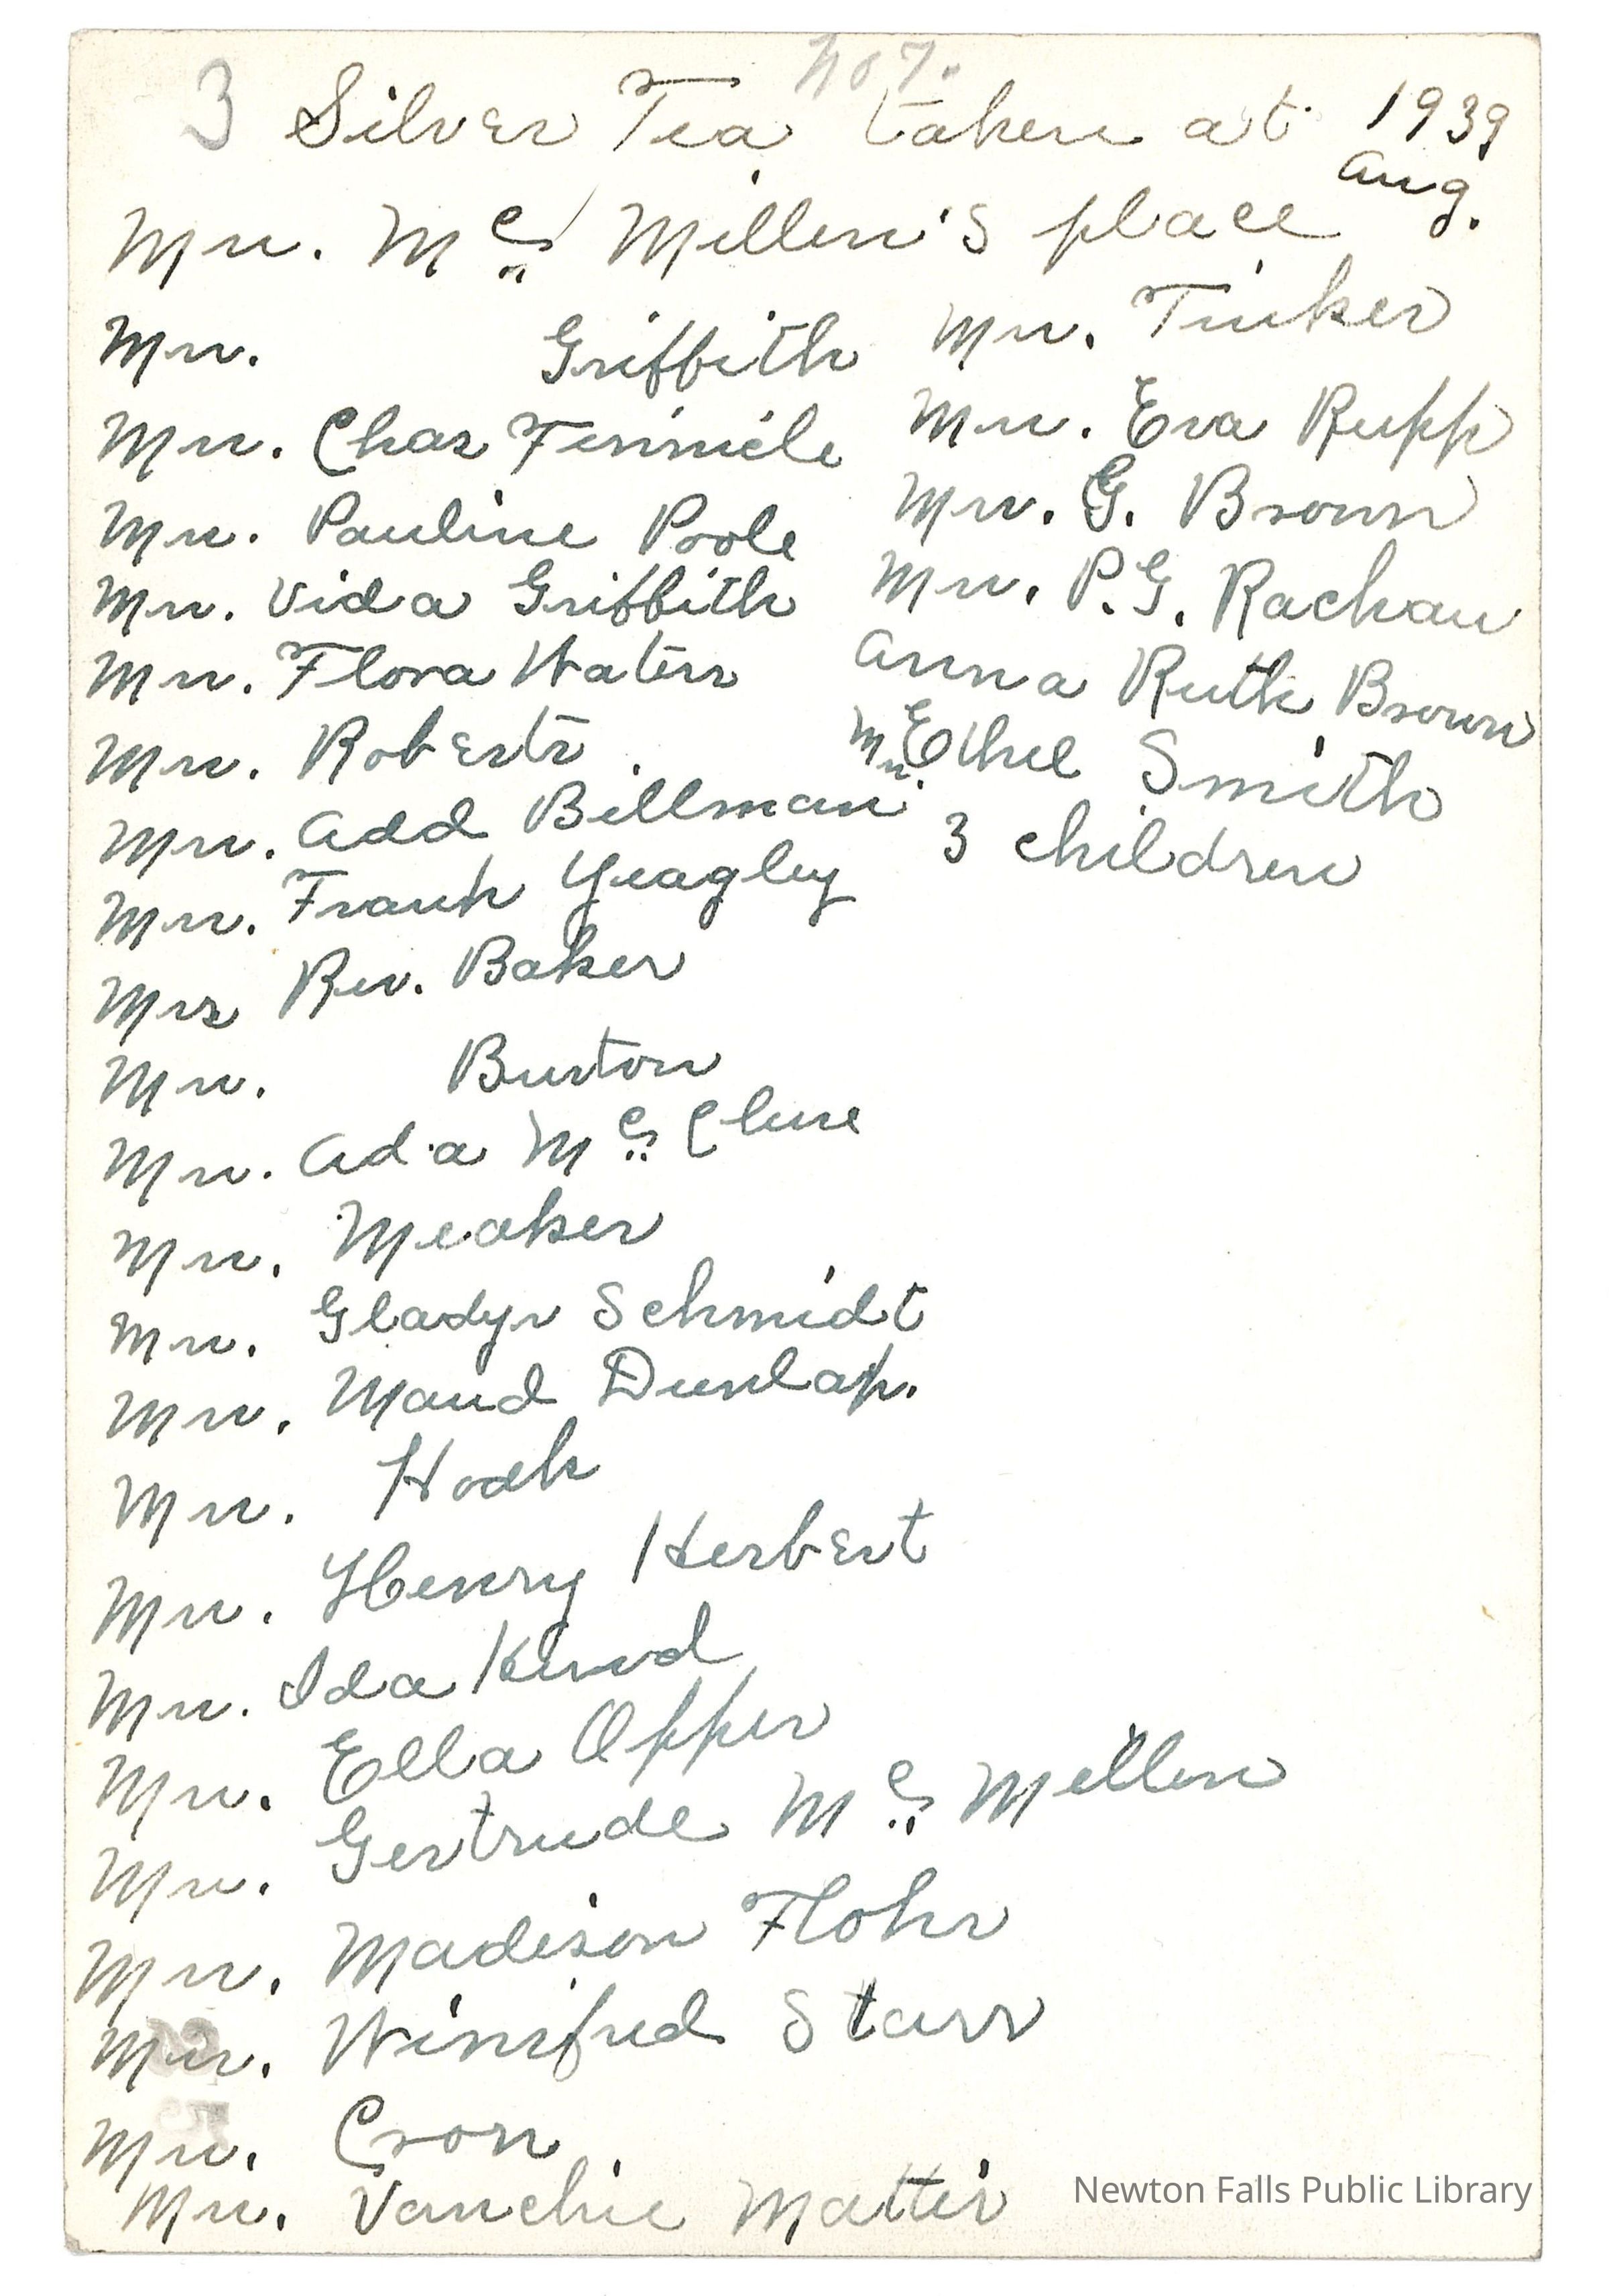 No 7.
3 Silver Tea taken at 1939
Aug.
Mrs. Mc Millen's place
Mrs. Griffith
Mrs. Chas Fennicle
Mrs. Pauline Poole
Mrs. Vida Griffith
Mrs. Flora Waters
Mrs. Roberts.
Mrs. Add Billman
Mrs. Frank Yeagley
Mrs Rev. Baker
Mrs. Burton
Mrs. Ada Mc Clure
Mrs. Meaker
Mrs. Gladys Schmidt
Mrs. Maud Dunlap.
Mrs.
Mrs. Henry Herbert
Mrs. Ida
Mrs. Ella Opper
Mrs. Gertrude Mc Millen
Mrs. Madison Flohr
Mrs. Winifred Starr
Mrs. Cron
Mrs. Vanchie Matter
Mrs. Tinker
Mrs. Eva Rupp
Mrs. G. Brown
Mrs. P.G. Rachau
Anna Ruth Brown
Mrs. Ethel Smith
3 children
Newton Falls Public Library